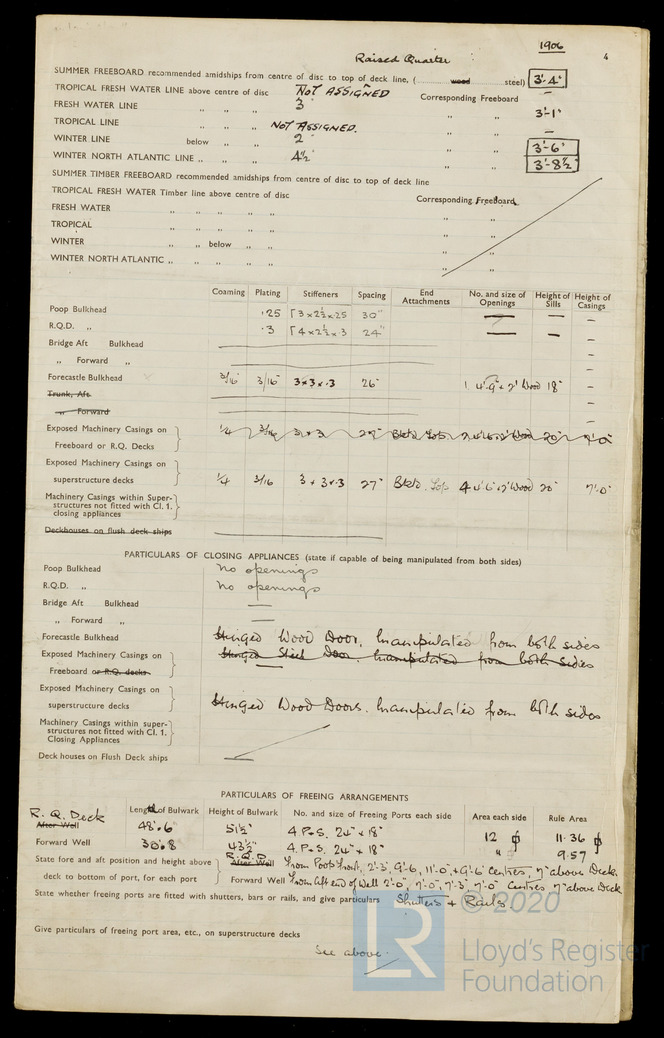 1906
4
Raised Quarter
SUMMER FREEBOARD recommended amidships from centre of disc to top of deck line, ( wood steel) 3'-4"
TROPICAL FRESH WATER LINE above centre of disc NOT ASSIGNED Corresponding Freeboard —
FRESH WATER LINE ,, ,, 3" ,, ,, 3'-1"
TROPICAL LINE ,, ,, NOT ASSIGNED. ,, ,, —
WINTER LINE below ,, ,, 2" ,, ,, 3'-6"
WINTER NORTH ATLANTIC LINE ,, ,, ,, 4½" ,, ,, 3'-8½"
SUMMER TIMBER FREEBOARD recommended amidships from centre of disc to top of deck line
TROPICAL FRESH WATER Timber line above centre of disc Corresponding Freeboard
FRESH WATER ,, ,, ,, ,, ,, ,,
TROPICAL ,, ,, ,, ,, ,, ,,
WINTER ,, ,, below ,, ,, ,, ,,
WINTER NORTH ATLANTIC ,, ,, ,, ,, ,, ,, ,,
Coaming Plating Stiffeners Spacing End Attachments No. and size of Openings Height of Sills Height of Casings
Poop Bulkhead .25 3 x 2½ x .25 30" — — —
R.Q.D. ,, .3 4 x 2½ x .3 24" — — —
Bridge Aft Bulkhead —
,, Forward ,, —
Forecastle Bulkhead 3/16" 3/16" 3 x 3 x .3 26" 1 4'-9" x 2' Wood 18" —
Trunk, Aft —
,, Forward —
Exposed Machinery Casings on Freeboard or R.Q. Decks ¼ 3/16 3 x 3 20"
Exposed Machinery Casings on superstructure decks ¼ 3/16 3 x 3 x .3 27" 4 4'-6" x 2' Wood 20" 7'-0"
Machinery Casings within Super-
structures not fitted with Cl. 1.
closing appliances
Deckhouses on flush deck ships
PARTICULARS OF CLOSING APPLIANCES (state if capable of being manipulated from both sides)
Poop Bulkhead No openings
R.Q.D. ,, No openings
Bridge Aft Bulkhead —
,, Forward ,, —
Forecastle Bulkhead Hinged Wood Door. Manipulated from both sides
Exposed Machinery Casings on Hinged Steel Door. Manipulated from both sides
Freeboard or R.Q. decks —
Exposed Machinery Casings on
superstructure decks Hinged Wood Doors. Manipulated from both sides
Machinery Casings within super-
structures not fitted with Cl. 1.
Closing Appliances
Deck houses on Flush Deck ships —
PARTICULARS OF FREEING ARRANGEMENTS
Length of Bulwark Height of Bulwark No. and size of Freeing Ports each side Area each side Rule Area
R. Q. Deck
After Well 48.6" 51½" 4 P.&S. 24" x 18" 12 11.36
Forward Well 30.8 43½" 4 P.&S. 24" x 18" " 9.57
State fore and aft position and height above R.Q.D After Well from Poop front, 2'-3", 9'-6, 11'-0" & 9'-6" Centres, 7" above Deck.
deck to bottom of port, for each port Forward Well from Aft end of Well 2'-0", 7'-0", 7'-3", 7'-0" Centres 7" above Deck
State whether freeing ports are fitted with shutters, bars or rails, and give particulars Shutters & Rails
Give particulars of freeing port area, etc., on superstructure decks
See above.
LR
© 2020
Lloyd's Register
Foundation